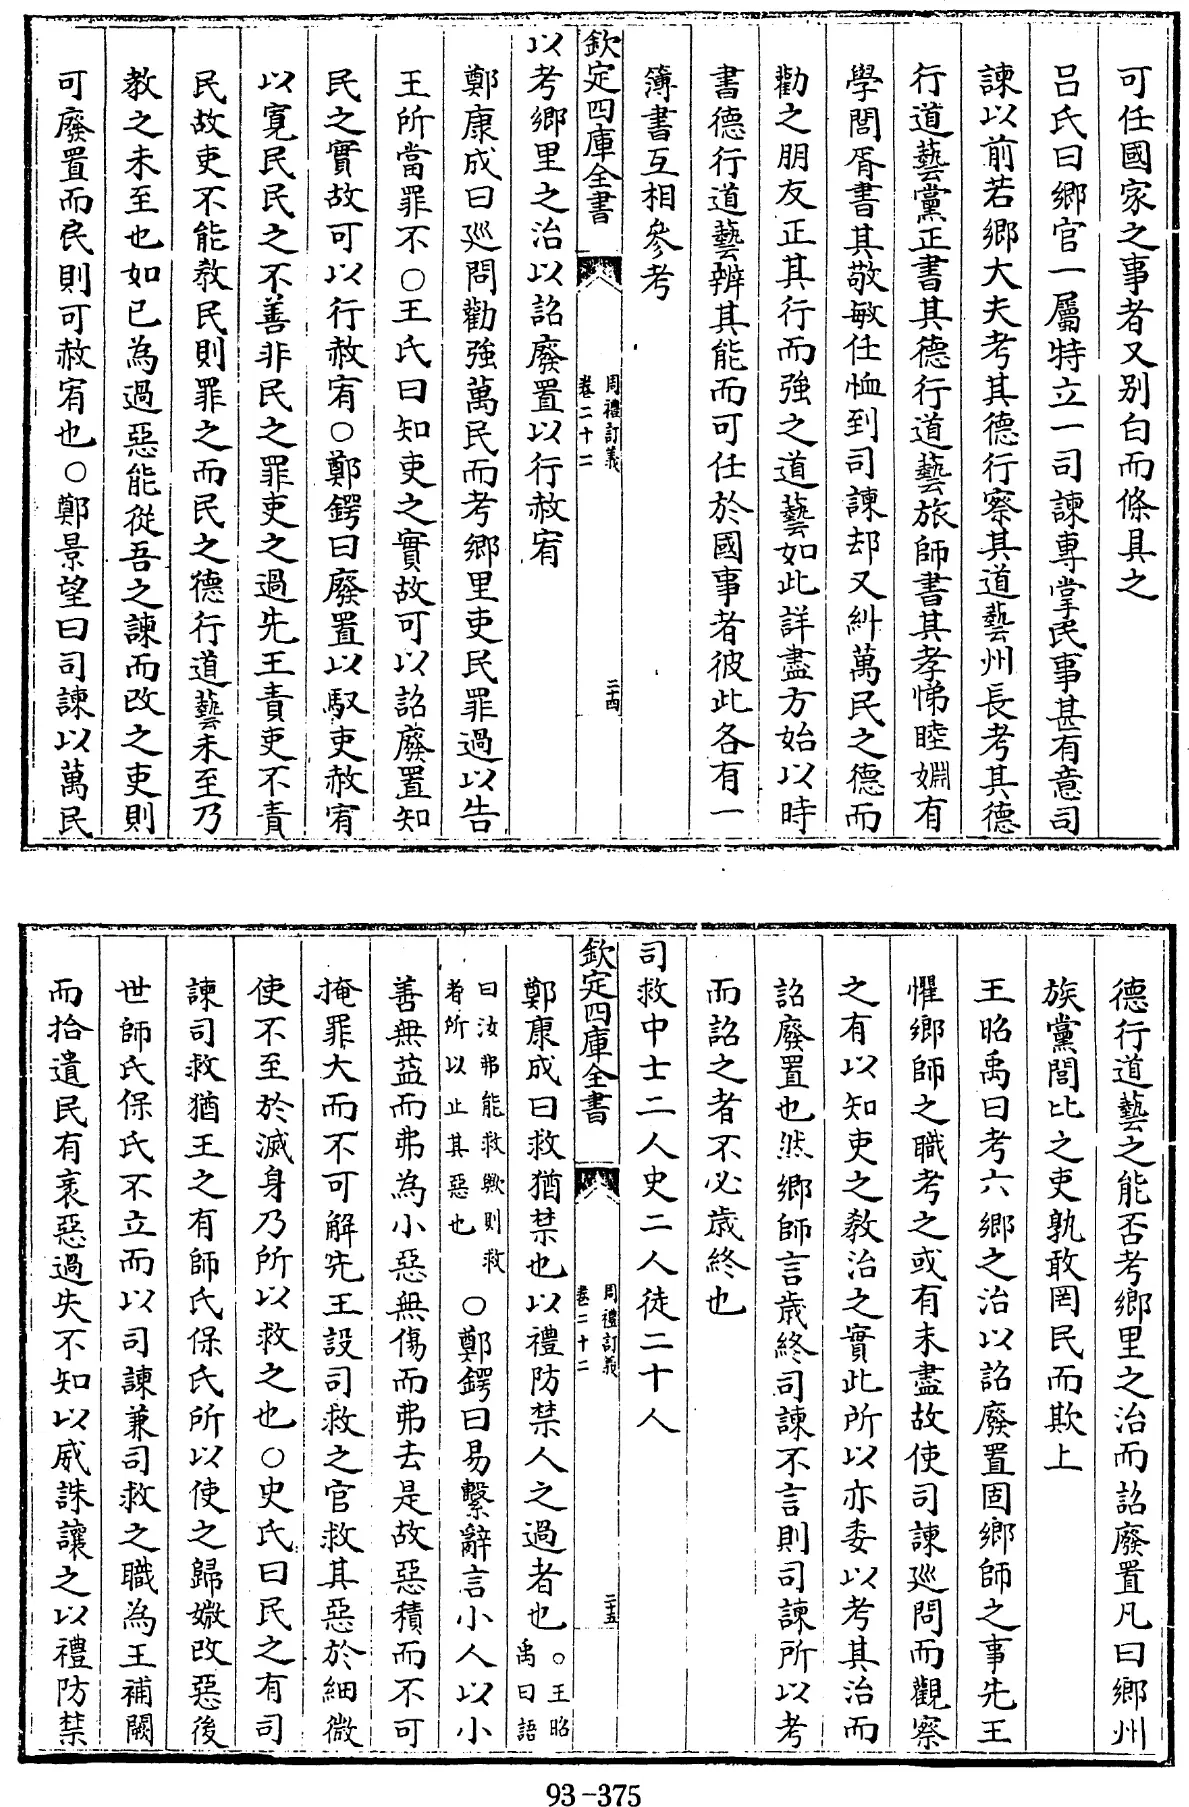 可任國家之事者又别白而條具之
吕氏曰鄉官一屬特立一司諫專掌民事甚有意司
諫以前若鄉大夫考其德行察其道藝州長考其德
行道藝黨正書其德行道藝旅師書其孝悌睦婣有
學閭胥書其敬敏任恤到司諫却又糾萬民之德而
勸之朋友正其行而強之道藝如此詳盡方始以時
書德行道藝辨其能而可任於國事者彼此各有一
簿書互相參考
欽定四庫全書
周禮訂義
卷二十二
二十四
以考鄉里之治以詔廢置以行赦宥
鄭康成曰廵問勸強萬民而考鄉里吏民罪過以告
王所當罪不○王氏曰知吏之實故可以詔廢置知
民之實故可以行赦宥○鄭鍔曰廢置以馭吏赦宥
以寛民民之不善非民之罪吏之過先王責吏不責
民故吏不能教民則罪之而民之德行道藝未至乃
教之未至也如已為過惡能從吾之諫而改之吏則
可廢置而民則可赦宥也○鄭景望曰司諫以萬民
德行道藝之能否考鄉里之治而詔廢置凡曰鄉州
族黨閭比之吏孰敢罔民而欺上
王昭禹曰考六鄉之治以詔廢置固鄉師之事先王
懼鄉師之職考之或有未盡故使司諫廵問而觀察
之有以知吏之教治之實此所以亦委以考其治而
詔廢置也然鄉師言歳終司諫不言則司諫所以考
而詔之者不必歳終也
司救中士二人史二人徒二十人
欽定四庫全書
周禮訂義
卷二十二
二十五
鄭康成曰救猶禁也以禮防禁人之過者也○王昭禹曰語
曰汝弗能救歟則救者所以止其惡也○鄭鍔曰易繫辭言小人以小
善無益而弗為小惡無傷而弗去是故惡積而不可
掩罪大而不可解先王設司救之官救其惡於細微
使不至於滅身乃所以救之也○史氏曰民之有司
諫司救猶王之有師氏保氏所以使之歸媺改惡後
世師氏保氏不立而以司諫兼司救之職為王補闕
而拾遺民有衺惡過失不知以威誅讓之以禮防禁
93-375